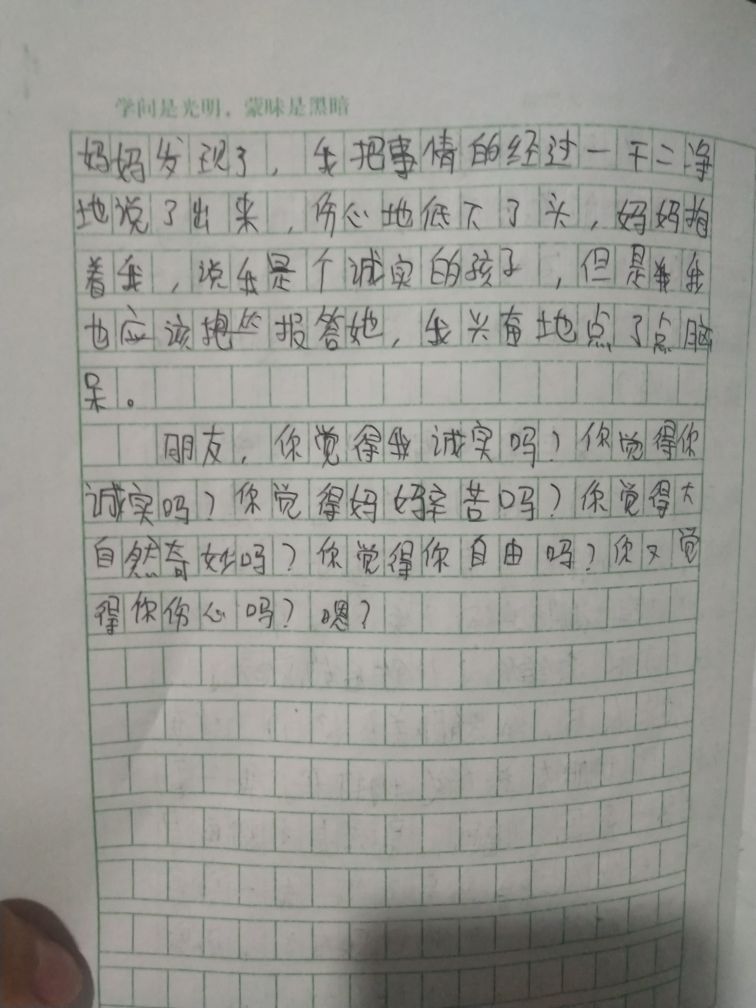 学问是光明，蒙昧是黑暗
妈妈发现了，我把事情的经过一干二净
地说了出来，伤心地低下了头，妈妈抱
着我，说我是个诚实的孩子，但是我
也应该报答她，我兴奋地点了点脑
呆。
朋友，你觉得我诚实吗？你觉得你
诚实吗？你觉得妈妈辛苦吗？你觉得大
自然奇妙吗？你觉得你自由吗？你又觉
得你伤心吗？嗯？